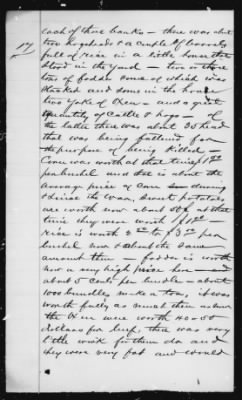 17
each of those banks - there was about
two hogsheads & a couple of barrels
full of rice in a little house that
stood in the yard - two or three
tons of fodder some of which was
stacked and some in the house
two yoke of Oxen - and a great
quantity of Cattle & hogs - of
the latter there was about 35 head
that was being fattened for
the purpose of being killed -
Corn was worth at that time 1.00
per bushel and that is about the
average price of Corn during
& since the war, Sweet potatoes
are worth now about 50¢ at that
time they were worth $1.00
rice is worth 2.00 to $3.00 per
bushel now & about the same
amount then - fodder is worth
not a very high price here - and
about 5 cents per bundle - about
1000 bundles make a ton, it was
worth fully as much then as now
the Oxen were worth 40 or 50
dollars for beef, there was very
little work for them do and
they were very fat and would